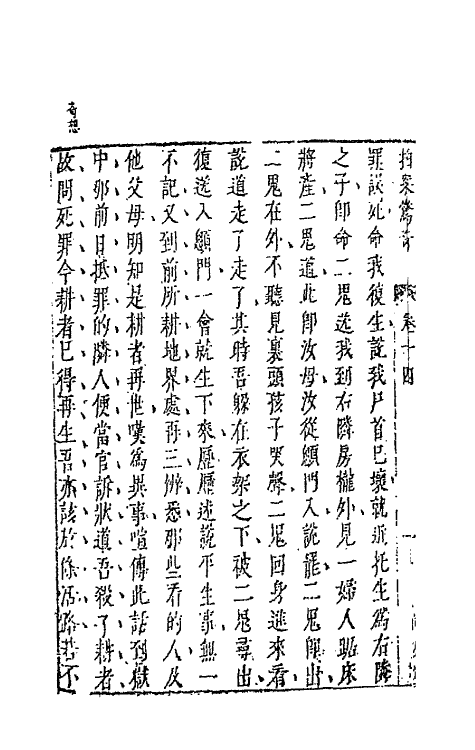 拍案驚奇 卷十四
罪誤死命我復生說我尸首已壞就近托生為右隣
之子即命二鬼送我到右隣房櫳外見一婦人踞床
將產二鬼道此即汝母汝從顖門入說罷二鬼即出
二鬼在外不聽見裏頭孩子哭聲二鬼回身進來看
說道走了走了其時吾躲在衣架之下被二鬼尋出
復送入顖門一會就生下來歷歷述說平生事無一
不記又到前所耕地界處再三辨悉那些看的人及
他父母明知是耕者再世嘆為異事喧傳此話到獄
中那前日抵罪的隣人便當官訴狀道吾殺了耕者
故問死罪今耕者已得再生吾亦該放條活路若不
奇想